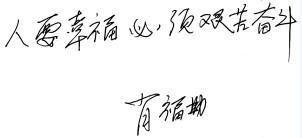 人要幸福必须艰苦奋斗
肖福勋